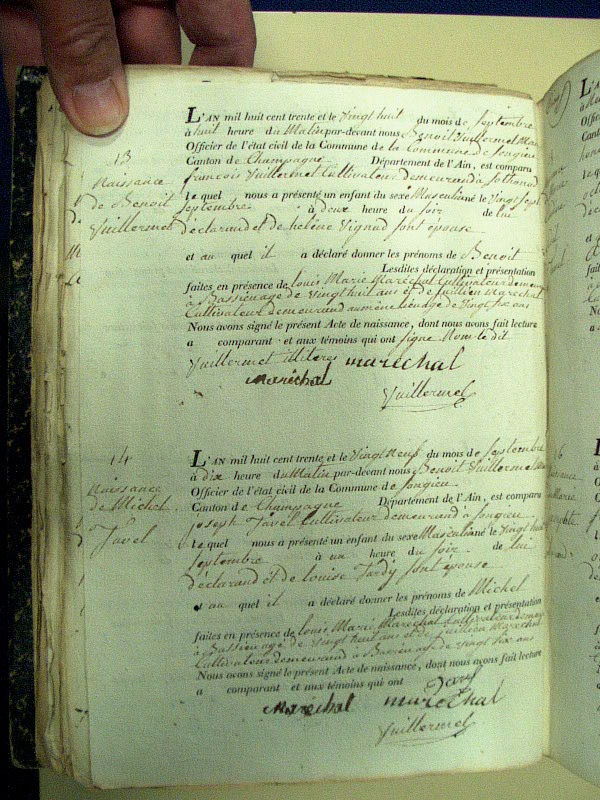 13
Naissance
de Benoit
Vuillermet
L'AN mil huit cent trente et le Vingt huit du mois de Septembre
à huit heure du Matin par-devant nous Benoit Vuillermet
Officier de l'état civil de la Commune de la Commune de Songieu
Canton de Champagne Département de l'Ain, est comparu
françois Vuillermet Cultivateur demeurand à
Le quel nous a présenté un enfant du sexe Masculin né le Vingt Sept
Septembre à deux heure du soir de lui
déclarand et de helène Vignad sont épouse
et au quel il a déclaré donner les prénoms de Benoit
Lesdites déclaration et présentation
faites en présence de louis Marie Maréchal Cultivateur
à Bassieu age de Vingt huit ans et de Maréchal
Cultivateur demeurand au même lieu agé de Vingt six ans
Nous avons signé le présent Acte de naissance, dont nous avons fait lecture
a comparant et aux témoins qui ont signe Non le dit
Vuillermet maréchal
Maréchal
Vuillermet
14
Naissance
de Michel
Favel
L'AN mil huit cent trente et le Vingt neuf du mois de Septembre
à dix heure du Matin par-devant nous Benoit Vuillermet
Officier de l'état civil de la Commune de Songieu
Canton de Champagne Département de l'Ain, est comparu
joseph Favel Cultivateur demeurand à Songieu
Le quel nous a présenté un enfant du sexe Masculin né le Vingt huit
Septembre à un heure du soir de lui
déclarand et de louise Tardy sont épouse
et au quel il a déclaré donner les prénoms de Michel
Lesdites déclaration et présentation
faites en présence de louis Marie Maréchal Cultivateur
à Bassieu agé de Vingt huit ans et de Maréchal
Cultivateur demeurand à Bassieu age de Vingt six ans
Nous avons signé le présent Acte de naissance, dont nous avons fait lecture
a comparant et aux témoins qui ont
Favel
Maréchal maréchal
Vuillermet